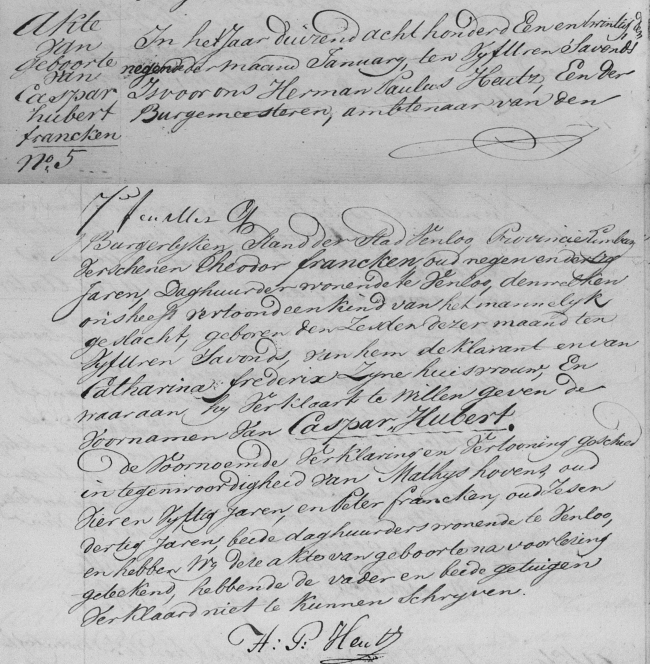 Akte
van
geboorte
van
Caspar
hubert
francken
No. 5
In het Jaar duizend acht honderd Een en twintig den
negende der maand January, ten Vyf Uren Savonds
Is voor ons Herman Paulus Heutz, Een der
Burgemeesteren, ambtenaar van den
Burgerlyken Stand der Stad Venloo Provincie Limburg
Verschenen Theodor francken, oud negen en dertig
Jaren Daghuurder wonende te Venloo, denwelken
ons heeft vertoond een kind van het mannelyk
geslacht, geboren den Zesden dezer maand ten
Vyf Uren Savonds, van hem deklarant en van
Catharina frederix Zyne huisvrouw, En
waaraan hy Verklaart te Willen geven de
Voornamen Van Caspar Hubert.
De Voornoemde Verklaring en Vertooning geschied
in tegenwoordigheid van Mathys hovens, oud
Vier en Vyftig Jaren, en Peter francken, oud Zes en
dertig Jaren, beide daghuurders wonende te Venloo,
en hebben Wy deze akte van geboorte na voorlezing
geteekend, hebbende de vader en beide getuigen
Verklaard niet te kunnen Schryven.
H: P: Heutz